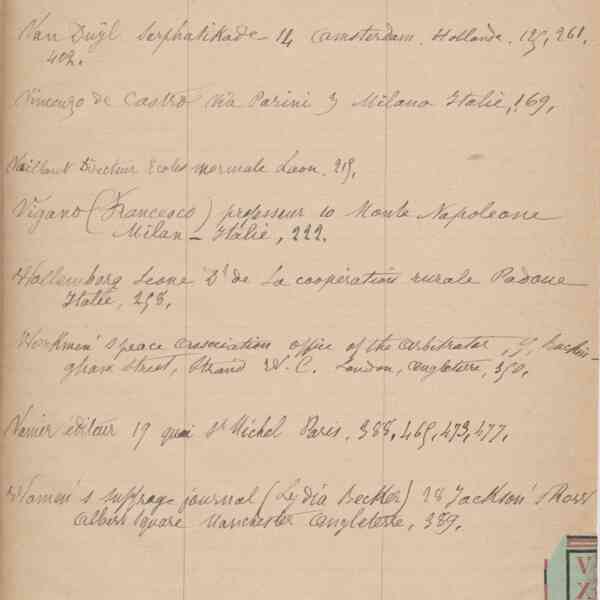 Van Duyl Sarphatikade - 14 Amsterdam. Hollande. 125, 261,
402.
Vincenzo de Castro Via Parini 3 Milano Italie, 169,
Directeur Ecole normale Laon, 215,
Vigano (Francesco) professeur 10 Monte Napoleone
Milan - Italie, 222.
Wollemborg Leone Dr de La coopération rurale Padoue
Italie, 298,
Workmen's peace association office of the arbitrator, 9, Buckin-
gham Street, Strand W. C. London, Angleterre, 350,
Vanier éditeur 19 quai St Michel Paris, 388, 469, 473, 477,
Women's suffrage journal (Lydia Becker) 28 Jackson's Row
Albert Square Manchester Angleterre, 389,
V
X